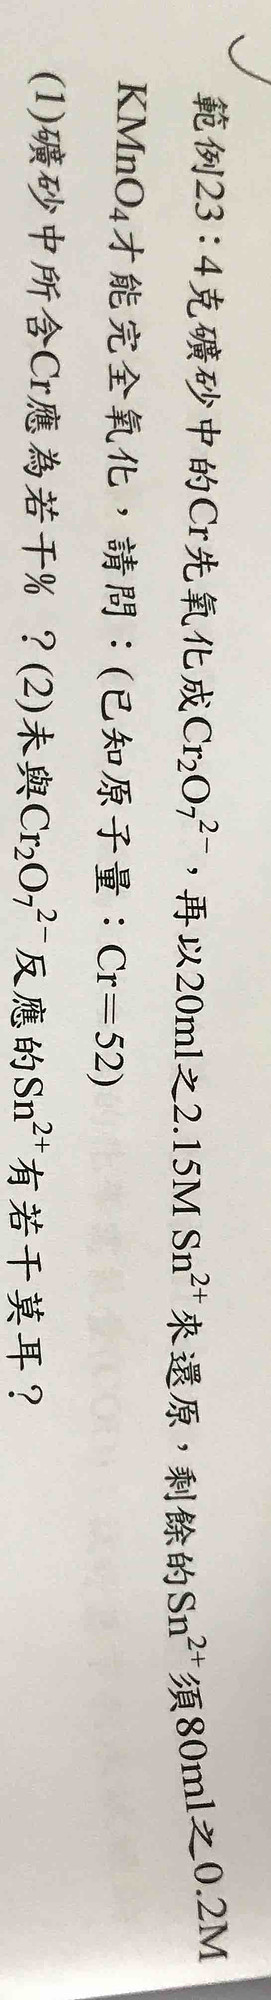 範例23：4克礦砂中的Cr先氧化成Cr₂O₇²⁻，再以20ml之2.15M Sn²⁺來還原，剩餘的Sn²⁺須80ml之0.2M
KMnO₄才能完全氧化，請問：(已知原子量：Cr=52)
(1)礦砂中所含Cr應為若干%？(2)未與Cr₂O₇²⁻反應的Sn²⁺有若干莫耳？